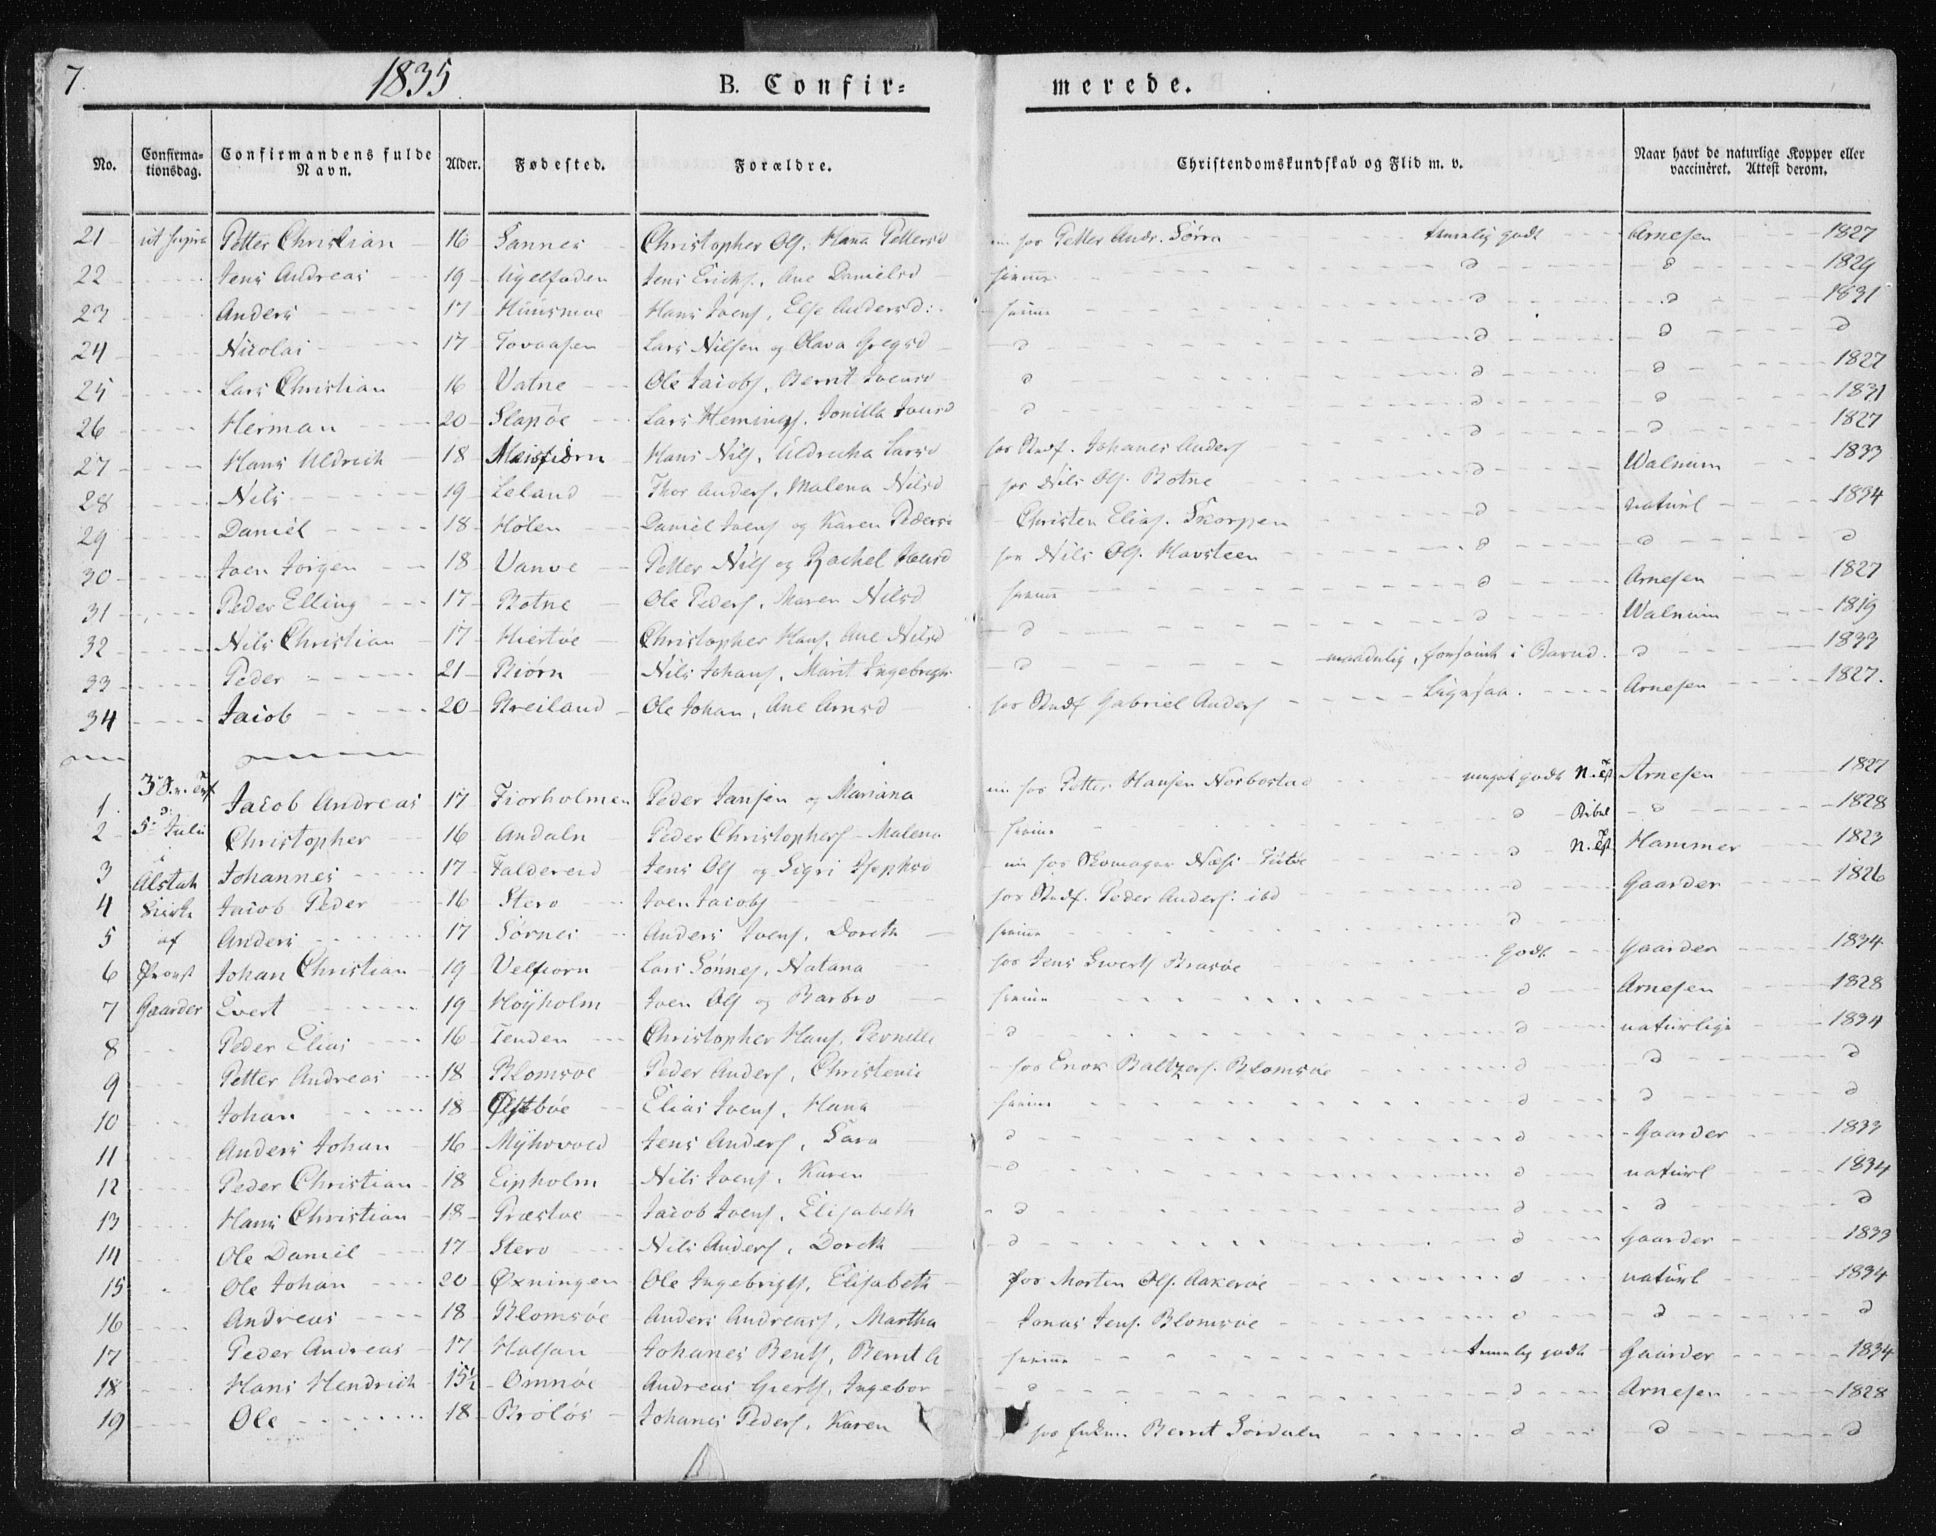 7. 1835 B. Confir= merede.
No. Confirma-tionsdag. Confirmandens fulde Navn. Alder. Fødested. Forældre. Christendomskundskab og Flid m. v. Naar havt de naturlige Kopper eller vaccinéret. Attest derom.
21 ut supra Petter Christian 16 Sannes Christopher Ols. Hana Pettersd hos Petter Andr. temelig godt Arnesen 1827
22 Jens Andreas 19 Jens Erichs. Ane Danielsd hiemme d d 1829
23 Anders 17 Huusmoe Hans Ivers, Else Andersd: hiemme d d 1831
24 Nicolai 17 Tovaasen Lars Nilsen og Olava d d d d
25 Lars Christian 16 Vatne Ole Jacobs, Berrit d d d 1827
26 Herman 20 Slapøe Lars Hemings. Jonilla d d d 1831
27 Hans Uldrich 18 Meisfiørn Hans Nils, Uldricha Larsd hos Johanes Anders d d 1827
28 Nils 19 Leland Thor Anders, Malena Nilsd hos Nils Ols. Botne d Walnum 1833
29 Daniel 18 Holen Daniel og Karen Peders Christen Elias. Skorpen d naturl 1834
30 Joen Jørgen 18 Vanve Petter Nils og Rachel hos Nils Ols. Havsteen d d d
31 Peder Elling 17 Botne Ole Peders, Maren Nilsd hiemme d Arnesen 1827
32 Nils Christian 17 Hiertøe Christopher Hans, Ane Nilsd d d Walnum 1819
33 Peder 21 Biørn Nils Johans, Marit Ingebregts d maadelig, forsømt i Barnd. d 1833
34 Jacob 20 Breiland Ole Johan, Ane Arnsd hos Gabriel Anders Ligesaa. Arnesen 1827.
1. Jacob Andreas 17 Fiorholmen Peder Jansen og Mariana hos Petter Hansen Norbostad meget godt N. Test Arnesen 1827
2 5. Julii Christopher 16 Andaln Peder Christophers Malena hiemme d Bibel d 1828
3 i Alstah Johannes 17 Faldereid Jens Ols og Sigri Josephsd hos Skomager d N. Test Hammer 1823
4 Kirke Jacob Peder 16 Stero Joen Jacobs hos Peder Anders. ibd d Gaarder 1826
5 af Anders 17 Sørnes Anders Joens, Doreth hiemme d
6 Provst Johan Christian 19 Velfiorn Lars Sønnes, Natana hos Jens Brasøe Godt Gaarder 1834
7 Gaarder Evert 19 Høyholm Joen Ols og Barbro hiemme d Arnesen 1828
8 Peder Elias 16 Tenden Christopher Hans, Pernelle d d naturlige 1834
9 Petter Andreas 18 Blomsøe Peder Anders, Christence hos Enok Baltzers. Blomsøe d d d
10 Johan 18 Østbøe Elias Joens, Hana hiemme d d d
11 Anders Johan 16 Myhrvold Jens Anders, Sara d d Gaarder 1833
12 Peder Christian 18 Nils Joens, Karen d naturl 1834
13 Hans Christian 18 Præstøe Jacob Joens, Elisabeth d d d d
14 Ole Daniel 17 Stero Nils Anders, Doreth d d Gaarder 1833
15 Ole Johan 20 Øxningen Ole Ingebrigts, Elisabeth hos Morten Ols. Aakerøe d naturl 1834
16 Andreas 18 Blomsøe Anders Andreass, Martha Jonas Jens. Blomsøe d d d
17 Peder Andreas 17 Halsan Johanes Bents, Berrit A hiemme temelig godt Gaarder 1834
18 Hans Hendrich 15½ Omnøe Andreas Gierts, Ingebor d d Arnesen 1828
19 Ole 18 Brøløs Johanes Peders, Karen hos Berrit Sørdaln d d d